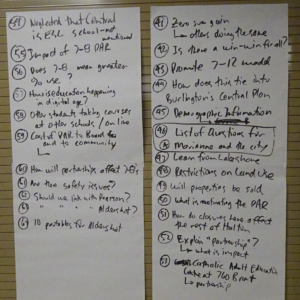 54 Neglected that Central
is ESL school - not
mentioned
55 Impact of 7-8 PAR
56 Does 7-8 mean greater
use?
57 How is education happening
in digital age?
58 Other students taking courses
at other schools / online
59 Cost of PAR to Board
and to community
60 How will partnerships affect
61 Are there safety issues?
62 Should we link with Pearson?
63 " " " " Aldershot?
64 10 portables for Aldershot
41 Zero sum gain
others doing the same
42 Is there a win-win for all?
43 Promote 7-12 model
44 How does this tie into
Burlington's Central Plan
45 Demographic Information
46 List of Questions for
Marianne and the city
47 Learn from Lakeshore
48 Restrictions on Land Use
49 Will properties be sold
50 What is motivating the PAR
51 How do closures here affect
the rest of Halton
52 Explain "partnership"?
what is impact
53 Catholic Adult Education
Centre at 760 Brant
partnership